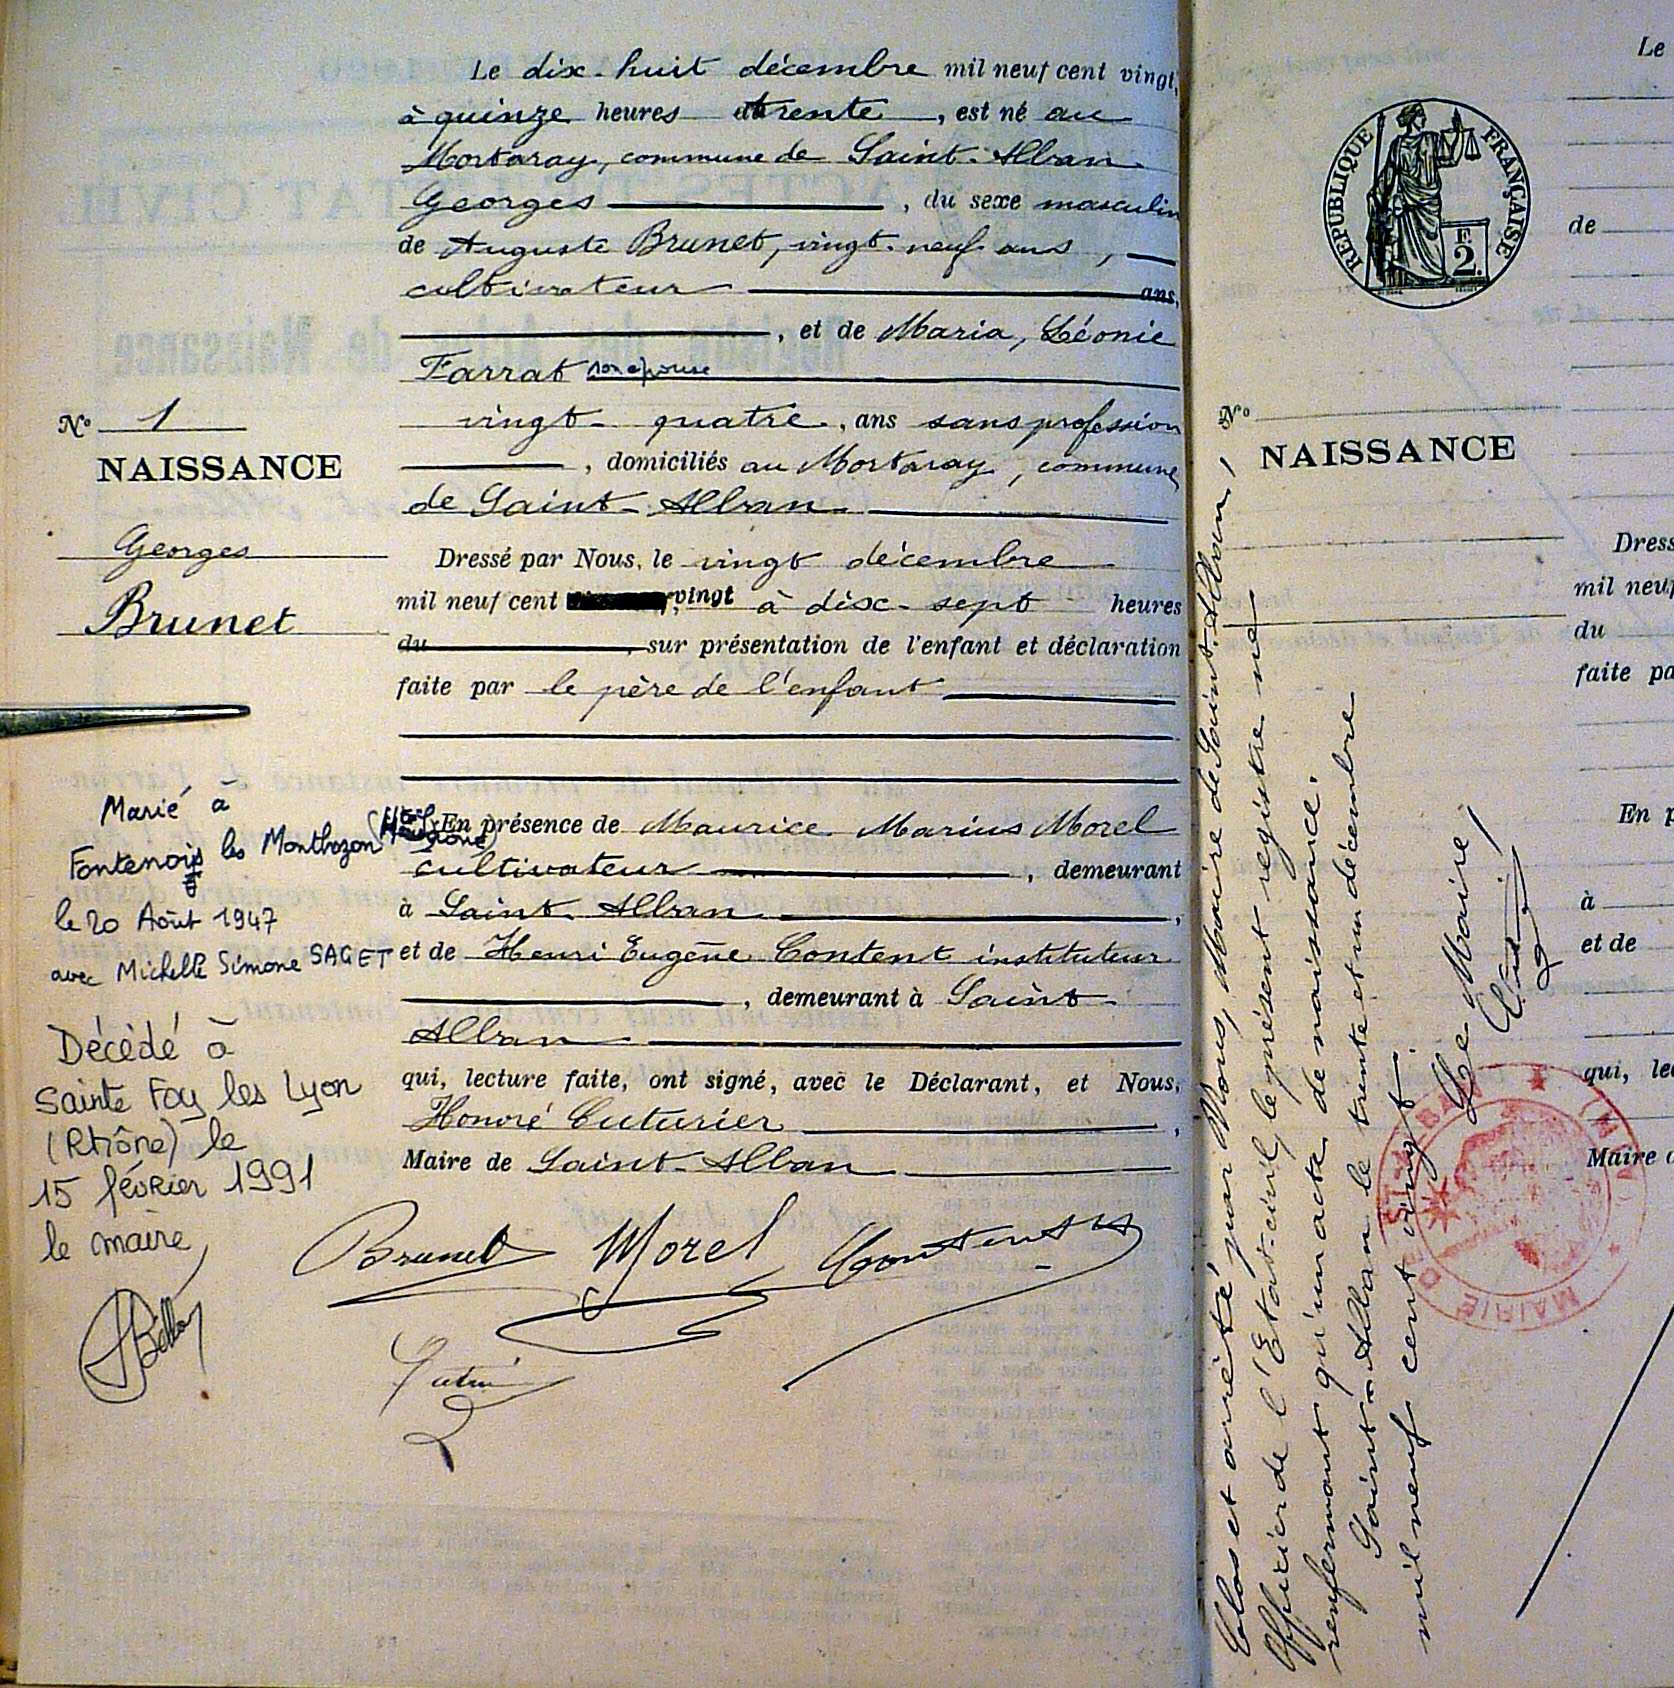 Le dix-huit décembre mil neuf cent vingt,
à quinze heures et trente, est né au
Mortaray, commune de Saint-Alban
Georges, du sexe masculin
de Auguste Brunet, vingt-neuf ans,
cultivateur ans,
, et de Maria, Léonie
Farrat son épouse
vingt-quatre, ans sans profession
, domiciliés au Mortaray, commune
de Saint-Alban
Nº 1
NAISSANCE
Georges
Brunet
Dressé par Nous, le vingt décembre
mil neuf cent vingt à dix-sept heures
du, sur présentation de l'enfant et déclaration
faite par le père de l'enfant
En présence de Maurice Marius Morel
cultivateur, demeurant
à Saint-Alban,
et de Henri Eugène Content instituteur
, demeurant à Saint-
Alban
qui, lecture faite, ont signé, avec le Déclarant, et Nous,
Honoré Cuturier,
Maire de Saint-Alban
Brunet Morel Content
Marié à
Fontenois les Montbozon (Hte Saône)
le 20 Août 1947
avec Michelle Simone SAGET
Décédé à
Sainte Foy les Lyon
(Rhône) le
15 février 1991
le maire
Clos et arrêté par Nous, Maire de Saint-Alban,
Officier de l'Etat-civil, le présent registre ne
renfermant qu'un acte de naissance.
Saint-Alban le trente et un décembre
mil neuf cent vingt.
Le Maire,
RÉPUBLIQUE FRANÇAISE
F.
2.
MAIRIE DE ST ALBAN
Nº
NAISSANCE
Le
de
Dress
mil neuf
du
faite pa
En p
à
et de
qui, lec
Maire d